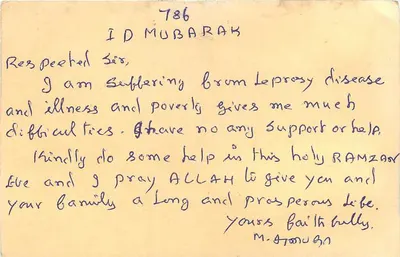 786
I D MUBARAK
Respected Sir,
I am Suffering from Leprosy disease
and illness and poverty gives me much
difficulties. I have no any Support or help.
Kindly do some help in this holy RAMZAN
Eve and I pray ALLAH to give you and
your family a Long and prosperous Life.
yours faithfully.
M.